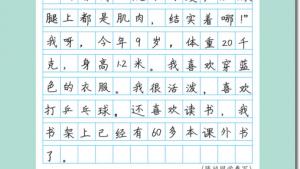 腿上都是肌肉，结实着哪！”
我呀，今年9岁，体重20千
克，身高1.2米。我喜欢穿蓝
色的衣服。我很活泼，喜欢
打乒乓球。还喜欢读书，我
书架上已经有60多本课外书
了。